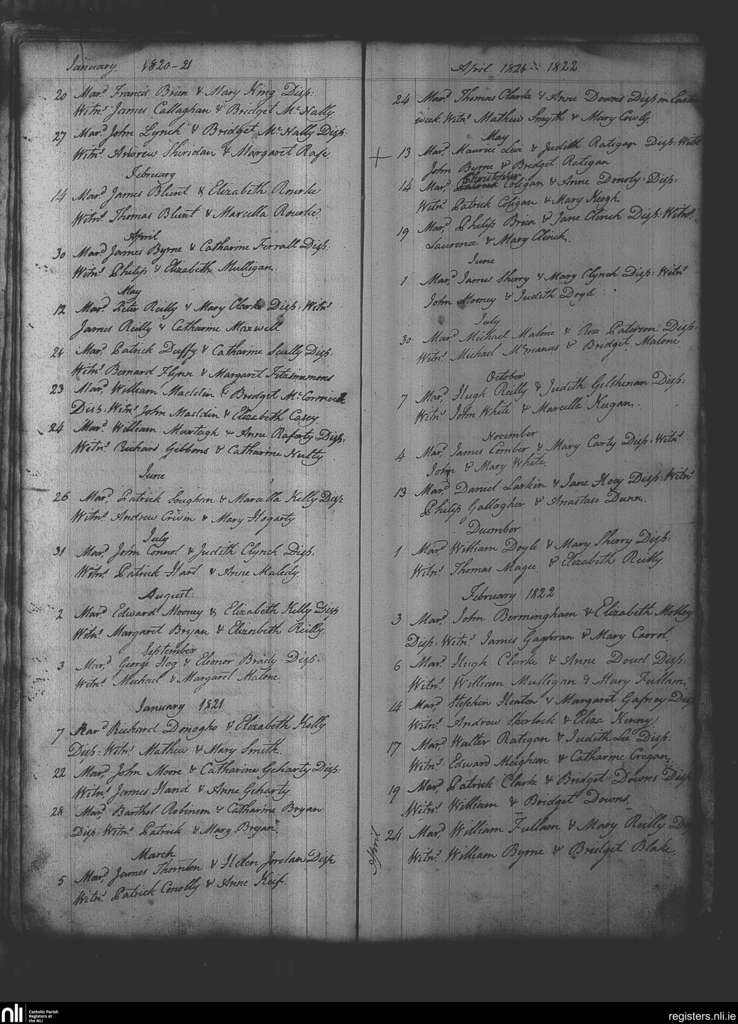 January 1820-21
20 Mard Francis Brien & Mary King Disp:
Witns James Callaghan & Bridget McNally
27 Mard John Lynch & Bridget McNally Disp:
Witns Andrew Sheridan & Margaret Rafe
February
14 Mard James Blunt & Elizabeth Rourke
Witns Thomas Blunt & Marcella Rourke
April
30 Mard James Byrne & Catharine Ferrall Disp.
Witns Philip & Elizabeth Mulligan.
May
12 Mard Peter Reilly & Mary Clarke Disp: Witns
James Reilly & Catharine Maxwell
21 Mard Patrick Duffy & Catharine Scully Disp.
Witns Bernard Flynn & Margaret Fitzsimmons
23 Mard William Maclden & Bridget McCormick
Disp: Witns John Maslden & Elizabeth Casey
24 Mard William Murtagh & Anne Raferty Disp:
Witns Richard Gibbons & Catharine Nulty
June
26 Mard Patrick Loughran & Marcella Kelly Disp
Witns Andrew Crinon & Mary Hogarty
July
31 Mard John Connol & Judith Clynch Disp.
Witns Patrick Hart & Anne Maledy.
August.
2 Mard Edward Mooney & Elizabeth Kelly Disp
Witns Margaret Bryan & Elizabeth Reilly
September
3 Mard George Hog & Eleonor Brady Disp.
Witns Michael & Margaret Malone
January 1821
7 Mard Richard Donogho & Elizabeth Kelly
Disp: Witns Mathew & Mary Smith.
22 Mard John Moore & Catharine Geharty Disp:
Witns James Hand & Anne Geharty
28 Mard Barthol Robinson & Catharine Bryan
Disp: Witns Patrick & Mary Bryan
March
5 Mard James Thornton & Helen Jordan Disp
Witns Patrick Conolly & Anne Keif.
April 1821 1822
24 Mard Thomas Clarke & Anne Downs Disp in Easter
week Witns Mathew Smyth & Mary
May
13 Mard Maurice Lee & Judith Ratigan Disp: Witns
John Byrne & Bridget Ratigan
Christopher
14 Mard Patrick Coligan & Anne Donoly Disp:
Witns Patrick Coligan & Mary Keogh
19 Mard Philip Brien & Jane Clinck Disp: Witns
Laurence & Mary Clinck.
June
1 Mard James Sherry & Mary Clynch Disp: Witns
John Morney & Judith Doyle
July
30 Mard Michael Malone & Rose Paterson Disp:
Witns Michael McManus & Bridget Malone
October
7 Mard Hugh Reilly & Judith Gelshinan Disp:
Witns John White & Marcella Keegan.
November
4 Mard James Comber & Mary Carty Disp: Witns
John & Mary White
13 Mard Daniel Larkin & Jane Hoey Disp: Witns
Philip Gallagher & Anastasa Dunn.
December
1 Mard William Doyle & Mary Sherry Disp:
Witns Thomas Magee & Elizabeth Reilly
February 1822
3 Mard John Bermingham & Elizabeth
Disp: Witns James Gaghran & Mary Carrol
6 Mard Hugh Clarke & Anne Doud Disp:
Witns William Mulligan & Mary Fullam.
14 Mard Stephen Heaton & Margaret Gafney Disp
Witns Andrew Sherlock & Eliza Kenny
17 Mard Walter Ratigan & Judith Lee Disp.
Witns Edward Meighan & Catharine Cregan,
19 Mard Patrick Clarke & Bridget Downs Disp
Witns William & Bridget Downs
April
24 Mard William Fullam & Mary Reilly
Witns William Byrne & Bridget Blake
nli
Catholic Parish
Registers at
the NLI
registers.nli.ie